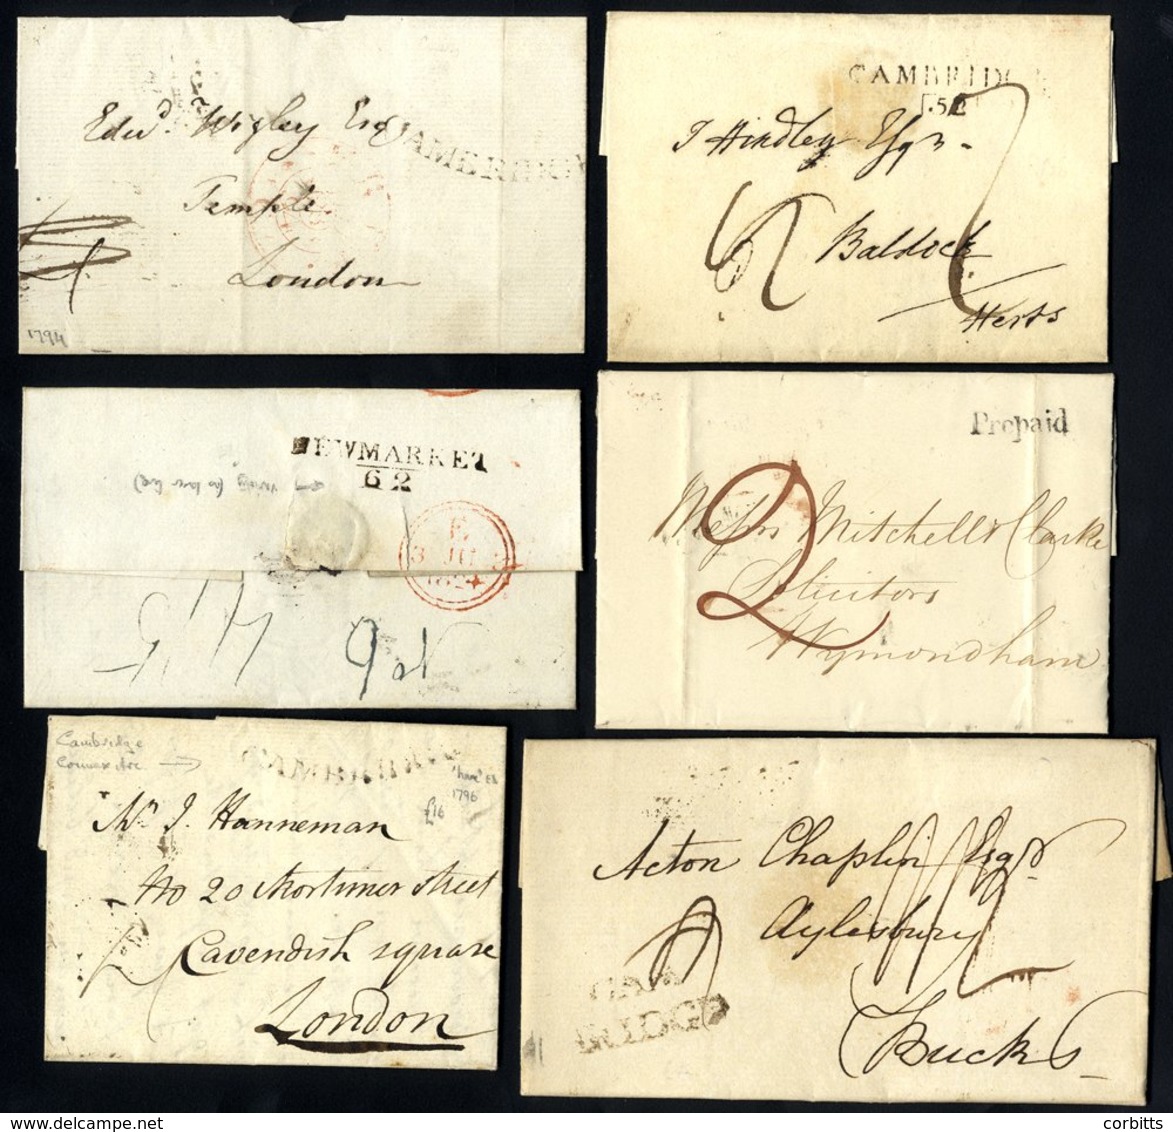 Edwd. Wigley Esqr
CAMBRIDGE
Temple
London
1794
CAMBRIDGE
52
J Hindley Esqr.
Baldock
Herts
NEWMARKET
62
1824
Prepaid
2
Messrs Mitchell & Clarke
Solicitors
Wymondham
Cambridge
Convex Arc
1796
£16
Mr. J. Hanneman
No 20 Mortimer Street
Cavendish square
London
Acton Chaplin Esqr
Aylesbury
CAM
BRIDGE
Bucks
corbitts